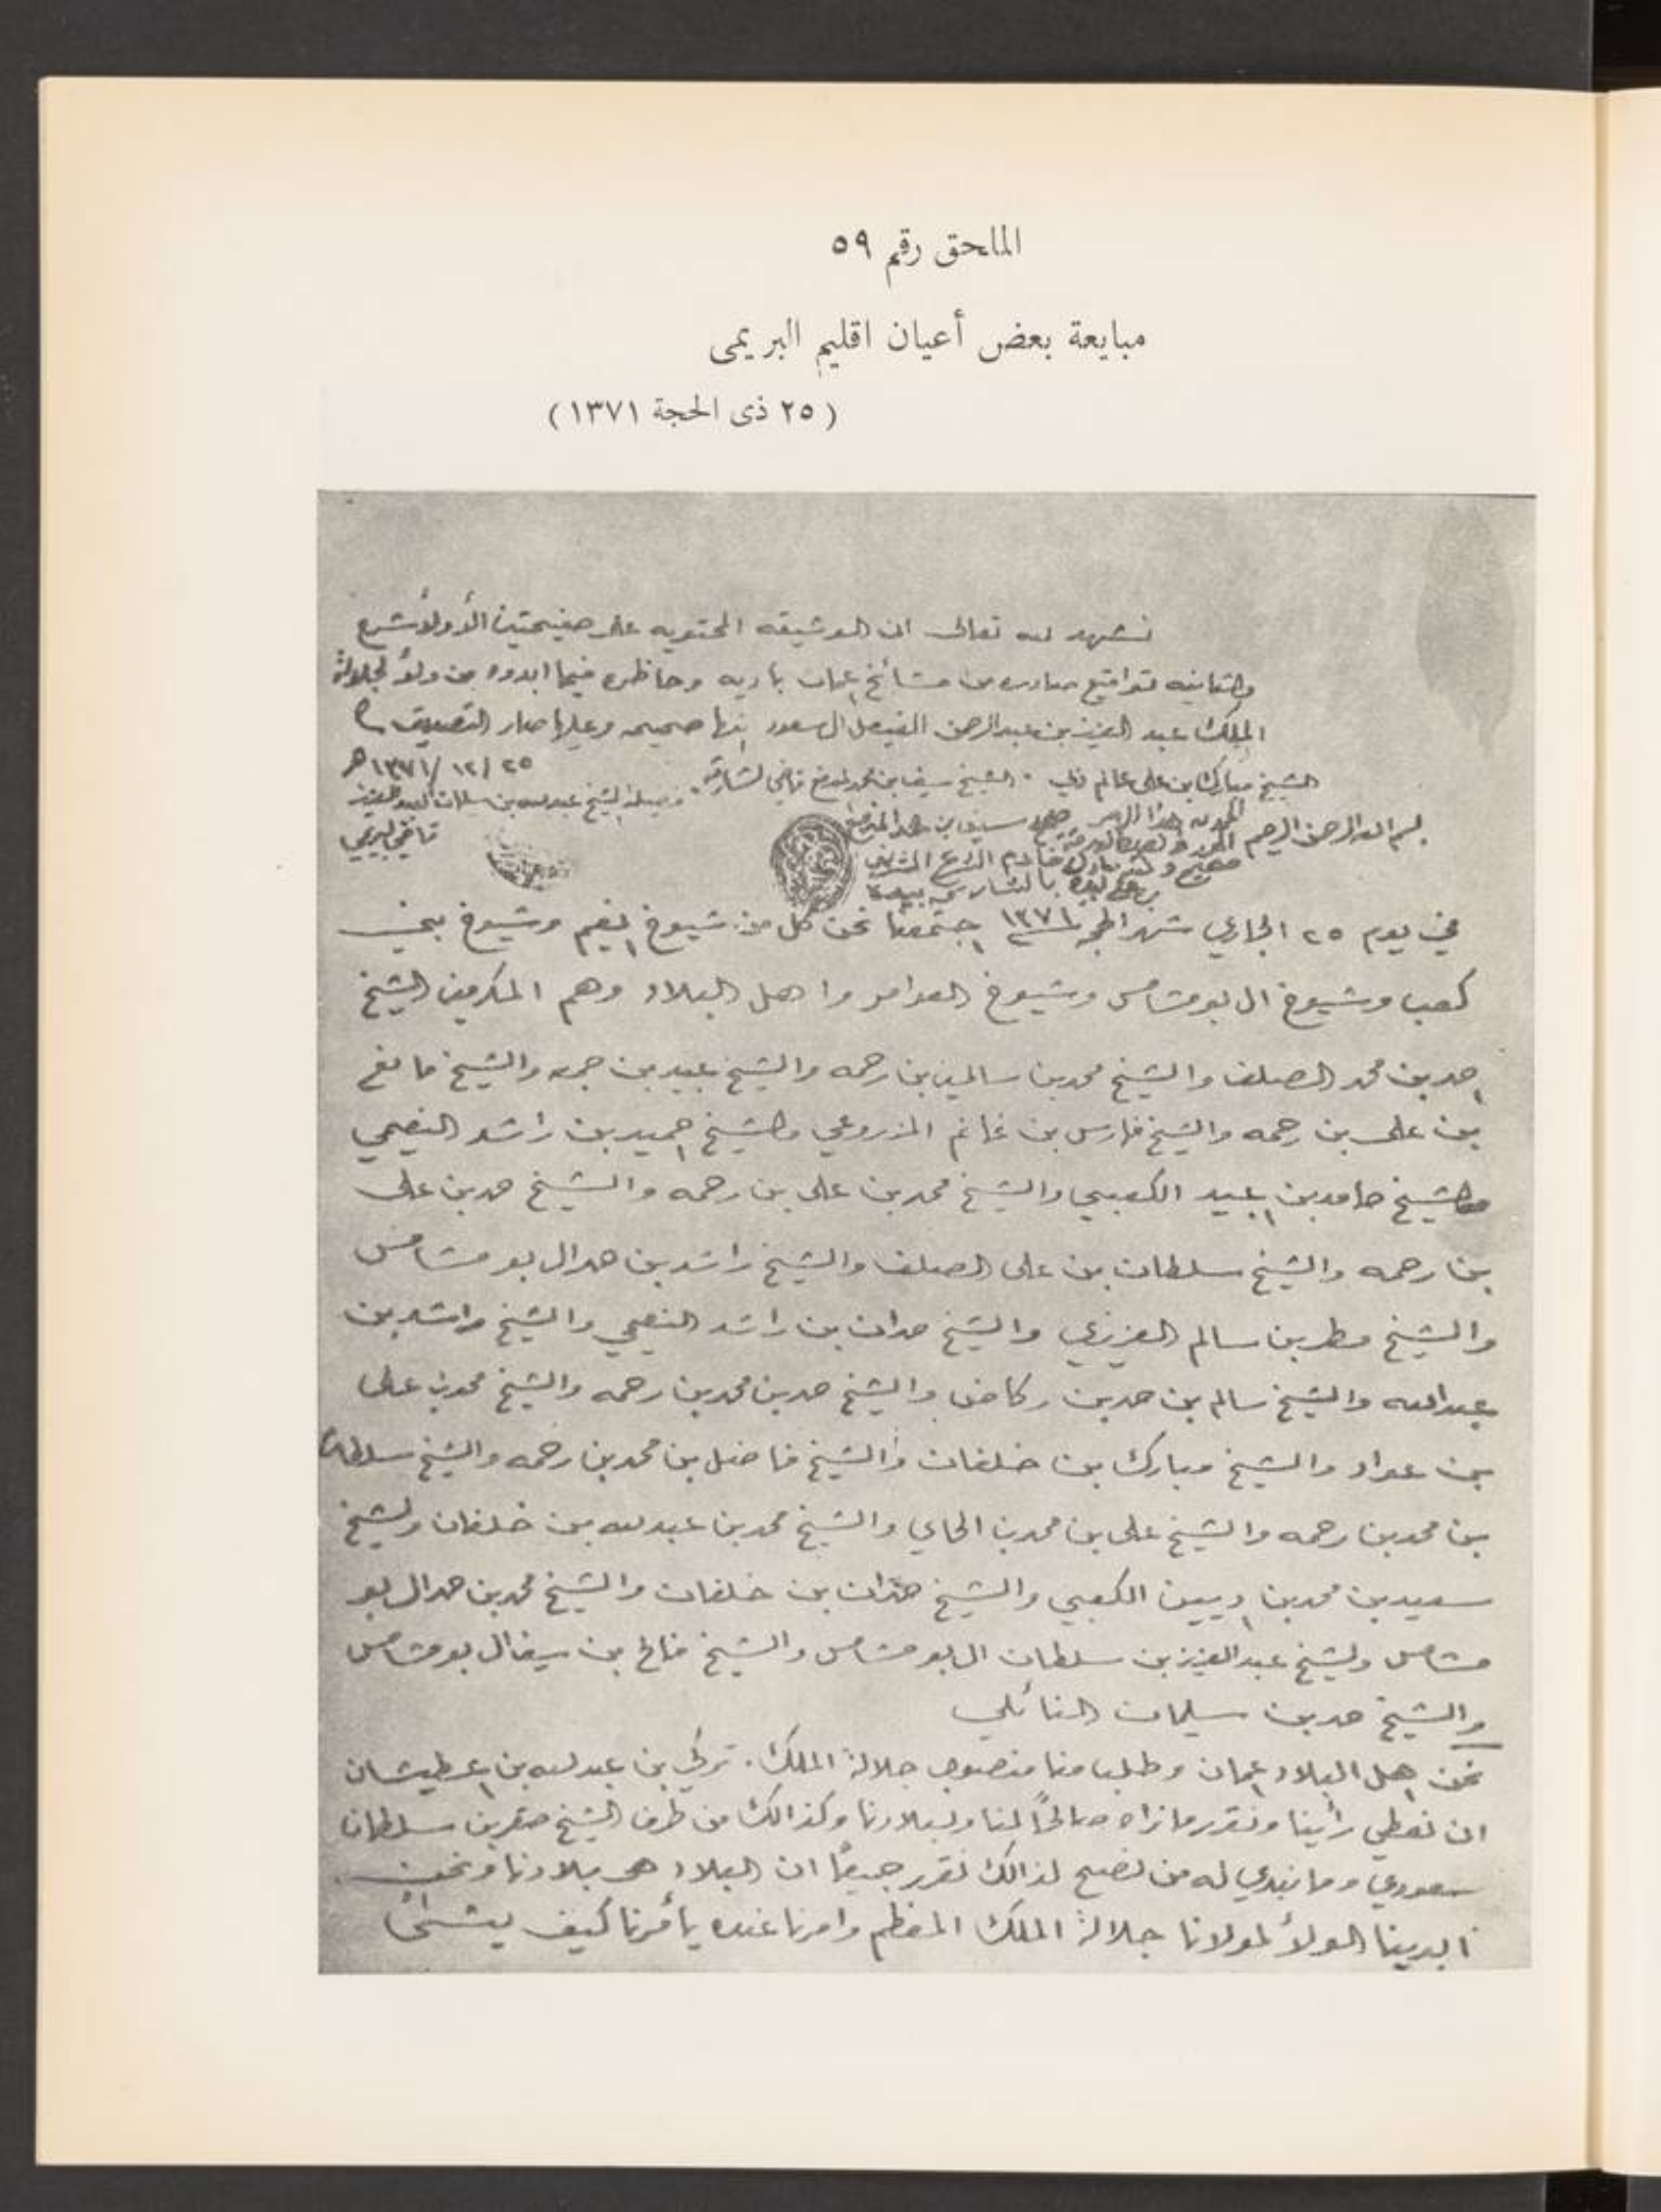 الملحق رقم ٥٩
مبايعة بعض أعيان اقليم البريمى
( ٢٥ ذى الحجة ١٣٧١ )
نشهد لله تعالى ان الوثيقه المحتويه على صفيحتين الأولا شرع
والثانيه تواقيع صادره من مشائخ عمان باديه وحاظره فيما ابدوه من ولاء لجلالة
الملك عبد العزيز بن عبد الرحمن الفيصل ال سعود بانها صحيحه وعليها صار التصديق
٢٥ / ١٢ / ١٣٧١ هـ
الشيخ مبارك بن علي عالم الشيخ سيف بن محمد قاضي الشارقه فضيلة الشيخ عبد الله بن سلمان العبد العزيز
قاضي البريمي
بسم الله الرحمن الرحيم الحمد لله
صحيح
خادم الشرع الشريف
بالشارقة بيده
في يوم ٢٥ الجاري شهر الحجه ١٣٧١ اجتمعنا نحن كل من شيوخ نعيم وشيوخ بني
كعب وشيوخ ال بو شامس وشيوخ العوامر واهل البلاد وهم المكرمين الشيخ
احمد بن محمد الصلف والشيخ محمد بن سالمين بن رحمه والشيخ عبيد بن جمعه والشيخ مانع
بن علي بن رحمه والشيخ فارس بن غانم المزروعي والشيخ احميد بن راشد النعيمي
والشيخ حامد بن عبيد الكعبي والشيخ محمد بن علي بن رحمه والشيخ حمد بن علي
بن رحمه والشيخ سلطان بن علي الصلف والشيخ راشد بن حمد ال بو مشامس
والشيخ مطر بن سالم العزيزي والشيخ حمدان بن راشد النعيمي والشيخ راشد بن
عبدالله والشيخ سالم بن حمد بن ركاض والشيخ حمد بن محمد بن رحمه والشيخ محمد بن علي
بن عواد والشيخ مبارك بن خلفان والشيخ فاضل بن محمد بن رحمه والشيخ سلطان
بن محمد بن رحمه والشيخ علي بن محمد بن الحاي والشيخ محمد بن عبد لله بن خلفان والشيخ
سعيد بن محمد بن ديين الكعبي والشيخ حمدان بن خلفان والشيخ محمد بن حمد ال بو
مشامس والشيخ عبد العزيز بن سلطان ال بو مشامس والشيخ فالح بن سيف ال بو مشامس
والشيخ حمد بن سليمان النائلي
نحن اهل البلاد عمان وطلب منا منصوب جلالة الملك . تركي بن عبد لله بن عطيشان
ان نعطي رأينا ونقرر ما نراه صالحاً لنا ولبلادنا وكذالك من طرف الشيخ صقر بن سلطان
سعودي وما نبدي له من نصح لذالك نقرر جميعاً ان البلاد هي بلادنا ونحن
ابدينا الولأ لمولانا جلالة الملك المعظم وامرنا عنده يأمرنا كيف يشأ